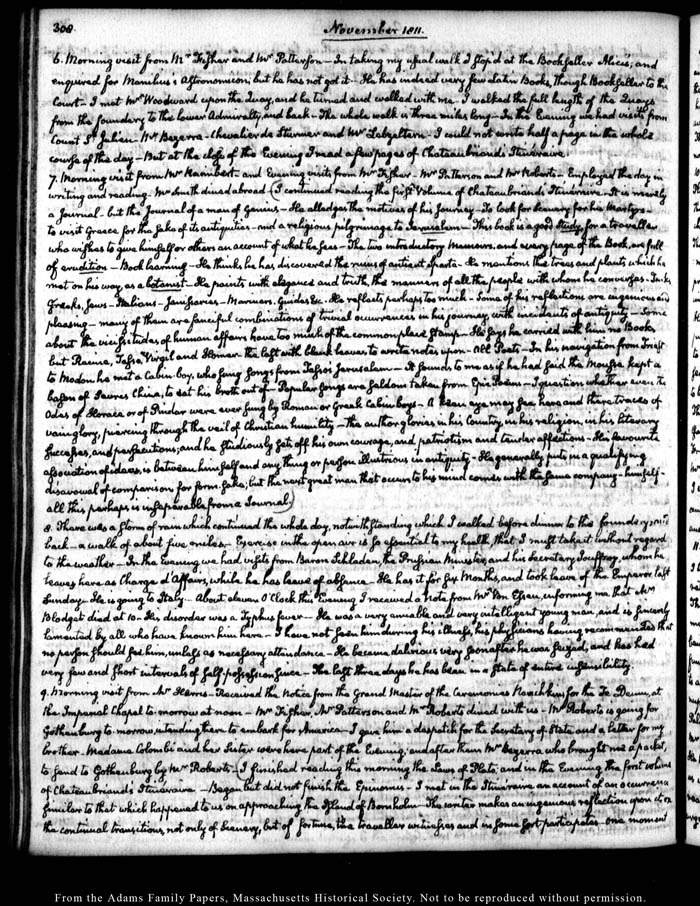 308.
November 1811.
6. Morning visit from Mr Fisher and Mr Patterson — In taking my usual walk I stop'd at the Bookseller Alici's, and
enquired for Manilius's Astronomicon, but he has not got it — He has indeed very few Latin Books, though Bookseller to the
Court — I met Mr Woodward upon the Quay, and he turned and walked with me. I walked the full length of the Quays
from the foundery to the lower Admiralty, and back — The whole walk is three miles long — In the Evening we had visits from
Count St Julien — Mr Bezerra — Chevalier de Sturmer and Mr Lebzeltern — I could not write half a page in the whole
course of the day — But at the close of the Evening I read a few pages of Chateaubriand's Itineraire.
7. Morning visit from Mr Raimbert — and Evening visits from Mr Fisher — Mr Patterson and Mr Roberts — Employed the day in
writing and reading — Mr Smith dined abroad (I continued reading the first Volume of Chateaubriand's Itineraire — It is merely
a Journal — but the Journal of a man of Genius — He alledges the motives of his Journey — To look for scenery for his Martyrs —
to visit Greece for the sake of its antiquities — and a religious pilgrimage to Jerusalem — This book is a good study, for a traveller
who wishes to give himself or others an account of what he sees — The two introductory Memoirs, and every page of the Book, are full
of erudition — Book learning — He thinks he has discovered the ruins of antient Sparta — He mentions the trees and plants which he
met on his way, as a botanist — He paints with elegance and truth, the manners of all the people with whom he converses — Turks
Greeks, Jews — Italians — Janissaries — Mariners, Guides &c. He reflects perhaps too much — Some of his reflections are ingenious and
pleasing — many of them are fanciful combinations of trivial occurrences in his journey, with incidents of antiquity — Some
about the vicissitudes of human affairs have too much of the common place stamp — He says he carried with him no Books,
but Racine, Tasso, Virgil and Homer — the last with blank leaves to write notes upon — All Poets — In his navigation from Triest
to Modon he met a Cabin-boy, who sung songs from Tasso's Jerusalem — It sounds to me as if he had said the Mousse kept a
bason of Sevres China, to eat his broth out of — Popular songs are seldom taken from Epic Poems — I question whether even the
Odes of Horace or of Pindar were ever sung by Roman or Greek Cabin boys — A keen eye may see here and there traces of
vain glory, piercing through the veil of Christian humility — The author glories in his Country, in his religion, in his literary
successes, and persecutions; and he studiously sets off his own courage, and patriotism and tender affections — His favourite
association of ideas, is between himself and any thing or person illustrious in antiquity — He generally puts in a qualifying
disavowal of comparison for form sake; but the next great man that occurs to his mind comes with the same company — himself —
all this perhaps is inseparable from a Journal.)
8. There was a storm of rain which continued the whole day, notwithstanding which I walked before dinner to the foundery, and
back — a walk of about five miles — Exercise in the open air is so essential to my health, that I must take it without regard
to the weather — In the Evening we had visits from Baron Schladen, the Prussian Minister, and his Secretary Jouffroy, whom he
leaves here as Chargé d'Affaires, while he has leave of absence — He has it for six Months, and took leave of the Emperor last
Sunday — He is going to Italy — About eleven O'Clock this Evening I received a Note from Mr Von Essen, informing me that Mr
Blodget died at 10 — His disorder was a Typhus fever — He was a very amiable and very intelligent young man, and is sincerely
lamented by all who have known him here — I have not seen him during his illness, his physicians having recommended that
no person should see him, unless as necessary attendance — He became delirious very soon after he was seized, and has had
very few and short intervals of self-possession since — The last three days he has been in a state of entire insensibility.
9. Morning visit from Mr Harris — Received the Notice from the Grand Master of the Ceremonies Narishkin for the Te Deum, at
the Imperial Chapel to-morrow at noon — Mr Fisher, Mr Patterson and Mr Roberts dined with us — Mr Roberts is going for
Gothenburg to-morrow, intending there to embark for America — I gave him a despatch for the Secretary of State and a letter for my
brother — Madame Colombi and her Sister were here part of the Evening, and after them Mr Bezerra who brought me a packet,
to send to Gothenburg by Mr Roberts — I finished reading this morning the Laws of Plato and in the Evening the first volume
of Chateaubriand's Itineraire — Began but did not finish the Epinomis — I met in the Itineraire an account of an occurrence
similar to that which happened to us on approaching the Island of Bornholm — The writer makes an ingenious reflection upon it, on
the continual transitions, not only of Scenery, but of fortune, the traveller witnesses and in some sort participates — one moment
From the Adams Family Papers, Massachusetts Historical Society. Not to be reproduced without permission.